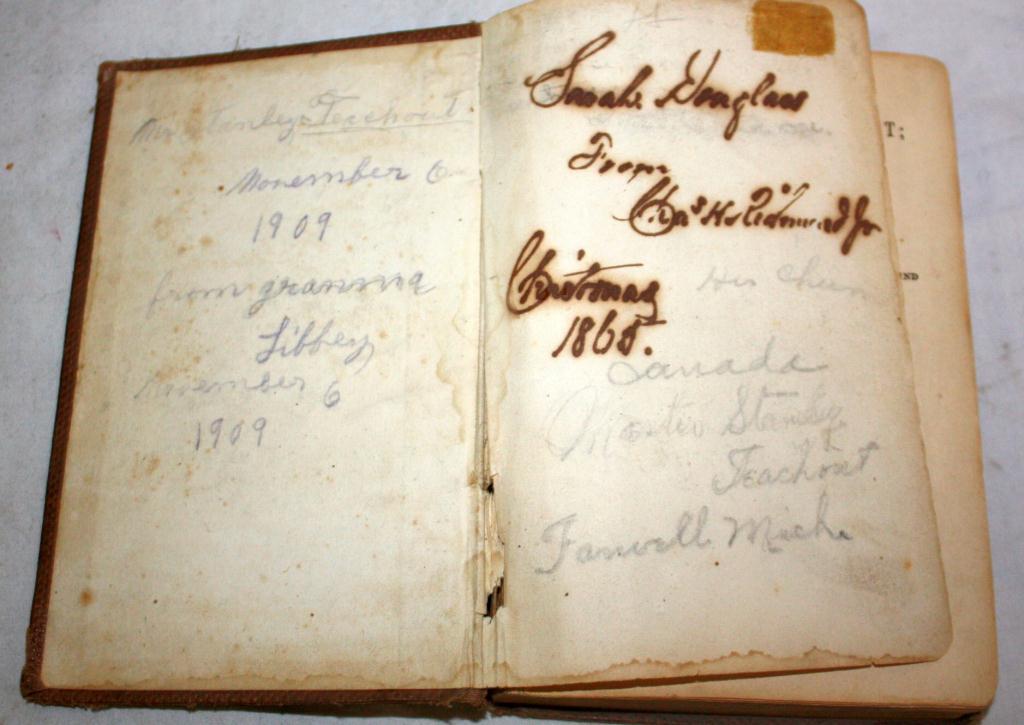 Mr Stanley Teachout.
November 6
1909
from granma
Libbey
November 6
1909
Sarah Douglass
From
Chas
Christmas
1865.
Canada
Master Stanley
Teachout
Farwell Mich.
T;
ND